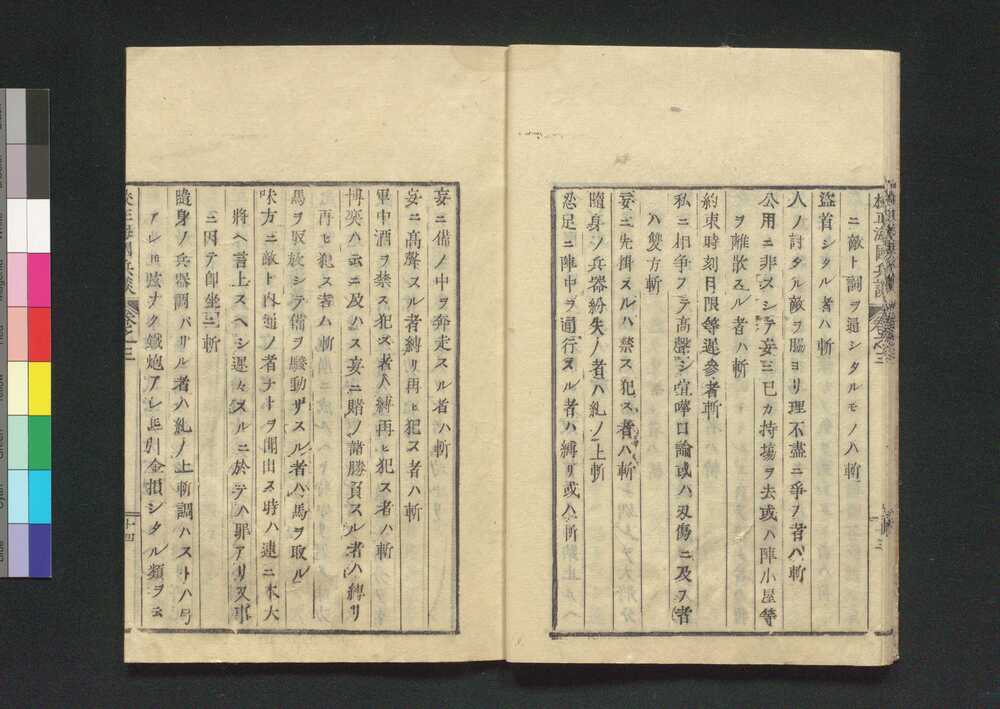 校正海國兵談 卷之三
ニ敵ト詞ヲ通シタルモノハ斬
盜首シタル者ハ斬
人ノ討タル敵ヲ脇ヨリ理不盡ニ爭フ者ハ斬
公用ニ非スシテ妄ニ己カ持場ヲ去或ハ陣小屋等
ヲ離散スル者ハ斬
約束時刻日限等遲參者斬
私ニ相爭フテ高聲シ喧嘩口論或ハ刄傷ニ及フ者
ハ雙方斬
妄ニ先掛スルハ禁ス犯ス者ハ斬
隨身ノ兵器紛失ノ者ハ糺ノ上斬
忍足ニ陣中ヲ通行スル者ハ縛リ或ハ斬
妄ニ備ノ中ヲ奔走スル者ハ斬
妄ニ高聲スル者縛リ再ヒ犯ス者ハ斬
軍中酒ヲ禁ス犯ス者ハ縛再ヒ犯ス者ハ斬
博奕ハ云ニ及ハス妄ニ賭ノ諸勝負スル者ハ縛リ
再ヒ犯ス者ハ斬
馬ヲ取放シテ備ヲ騒動サスル者ハ馬ヲ取ル
味方ニ敵ト内通ノ者ナトヲ聞出ス時ハ速ニ木大
將ヘ言上スヘシ遲々スルニ於テハ罪アリ又事
ニ因テ卽坐ニ斬
隨身ノ兵器調バザル者ハ糺ノ上斬調ハストハ弓
アレ𪜈弦ナク鐵炮アレ𪜈引金損シタル類ヲ云
校正海國兵談 卷之三 十四